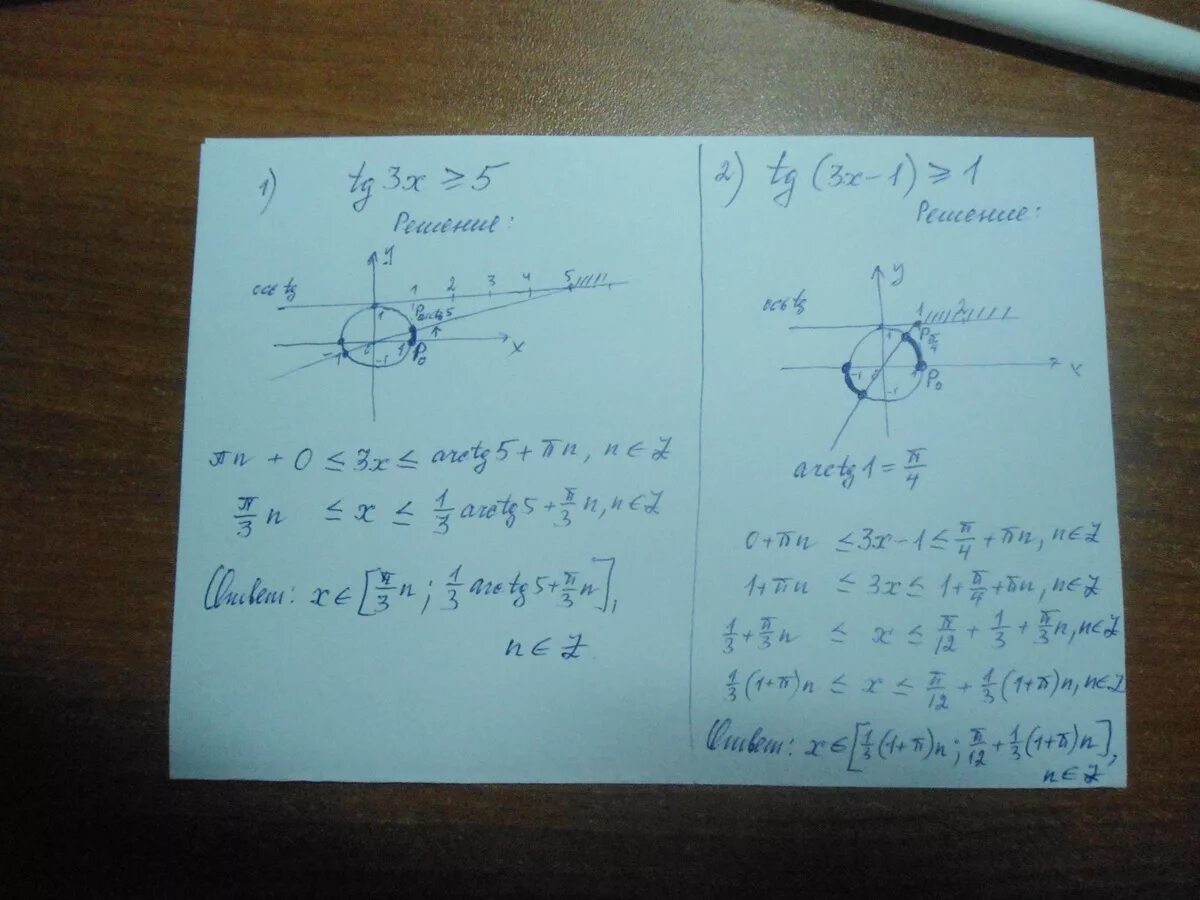 1) tg 3x ≥ 5
Решение:
y
ось tg
1 2 3 4 5
1
P arctg5
-1 0 1 P₀
x
-1
πn + 0 ≤ 3x ≤ arctg5 + πn, n ∈ Z
π/3 n ≤ x ≤ 1/3 arctg5 + π/3 n, n ∈ Z
Ответ: x ∈ [π/3 n ; 1/3 arctg5 + π/3 n],
n ∈ Z
2) tg (3x-1) ≥ 1
Решение:
y
ось tg
1 2
1
P π/4
-1 0 1 P₀
x
-1
arctg1 = π/4
0+πn ≤ 3x-1 ≤ π/4 + πn, n∈Z
1+πn ≤ 3x ≤ 1+π/4+πn, n∈Z
1/3 + π/3 n ≤ x ≤ π/12 + 1/3 + π/3 n, n∈Z
1/3 (1+π)n ≤ x ≤ π/12 + 1/3 (1+π)n, n∈Z
Ответ: x ∈ [1/3 (1+π)n ; π/12 + 1/3 (1+π)n],
n ∈ Z